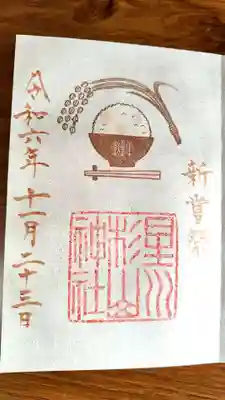 新嘗祭
星川
杉山
神社
令和六年十一月二十三日